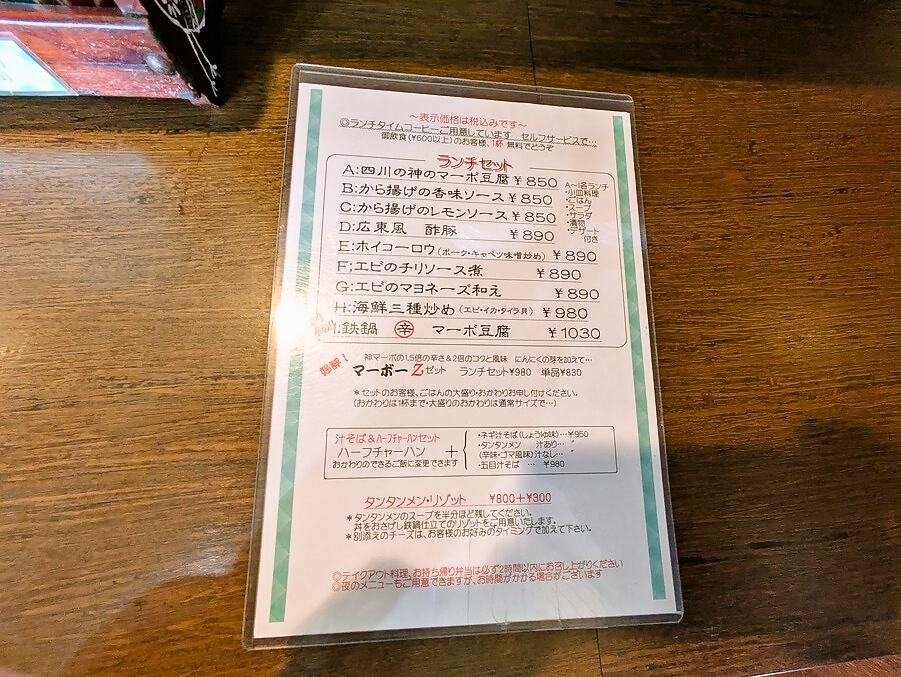 ～表示価格は税込みです～
◎ランチタイムコーヒーご用意しています　セルフサービスで…
御飲食(¥600以上)のお客様、1杯 無料でどうぞ
ランチセット
A:四川の神のマーボ豆腐 ¥850
B:から揚げの香味ソース ¥850
C:から揚げのレモンソース ¥850
D:広東風　酢豚 ¥890
E:ホイコーロウ(ポーク・キャベツ味噌炒め) ¥890
F:エビのチリソース煮 ¥890
G:エビのマヨネーズ和え ¥890
H:海鮮三種炒め(エビ・イカ・タイラ貝) ¥980
I:鉄鍋　辛　マーボ豆腐 ¥1030
A～I各ランチ
・小皿料理
・ごはん
・スープ
・サラダ
・漬物
・デザート
付き
神マーボの1.5倍の辛さ&2倍のコクと風味　にんにくの芽を加えて…
マーボーZセット　ランチセット¥980　単品¥830
＊セットのお客様、ごはんの大盛り・おかわりお申し付けください。
(おかわりは1杯まで・大盛りのおかわりは通常サイズで…)
汁そば&ハーフチャーハンセット
ハーフチャーハン　＋
おかわりのできるご飯に変更できます
・ネギ汁そば(しょうゆ味)…¥950
・タンタンメン　汁あり…〃
(辛味・ゴマ風味)汁なし…〃
・五目汁そば　…　¥980
タンタンメン・リゾット　¥800＋¥300
＊タンタンメンのスープを半分ほど残してください。
丼をおさげし鉄鍋仕立てのリゾットをご用意いたします。
＊別添えのチーズは、お客様のお好みのタイミングで加えて下さい。
◎テイクアウト料理、お持ち帰り弁当は必ず2時間以内にお召し上がりください
◎夜のメニューもご用意できますが、お時間がかかる場合がございます